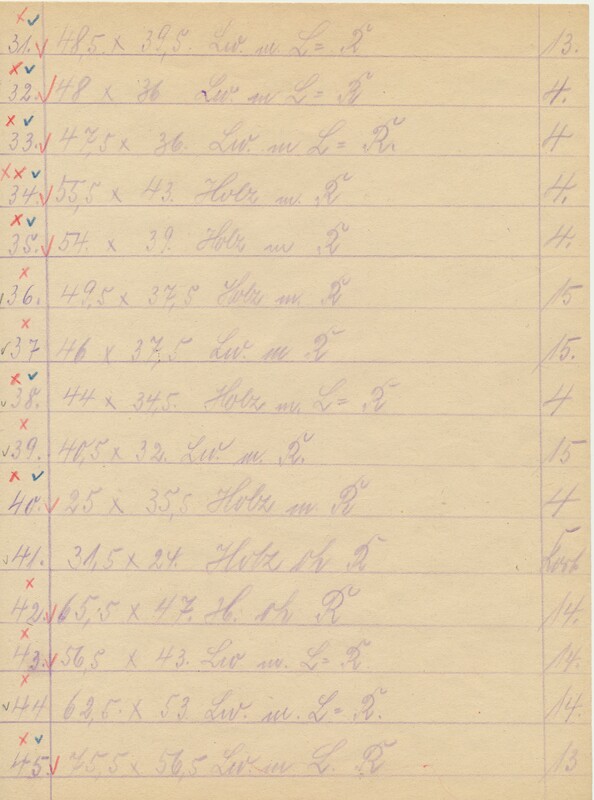 31. 48,5 x 39,5. Lw. m L= R 13.
32. 48 x 36 Lw. m L= R 4.
33. 47,5 x 36. Lw. m L= R. 4
34. 55,5 x 43. Holz m. R 4.
35. 54. x 39. Holz m R 4.
36. 49,5 x 37,5 Holz m. R 15
37 46 x 37,5 Lw. m R 15.
38. 44 x 34,5. Holz m. L= R 4
39. 40,5 x 32. Lw. m. R. 15
40. 25 x 35,5 Holz m. R 4
41. 31,5 x 24. Holz oh R
42. 65,5 x 47. H. oh R 14.
43. 56,5 x 43. Lw. m. L= R. 14.
44 62,5. x 53. Lw. m. L= R. 14.
45. 75,5 x 56,5 Lw. m L. R 13